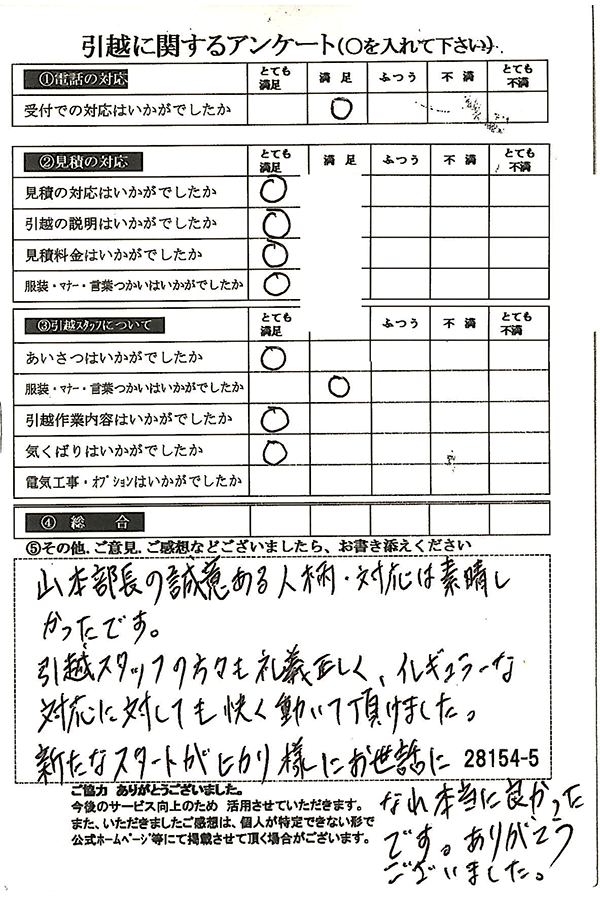 引越に関するアンケート(○を入れて下さい)
①電話の対応 とても満足 満足 ふつう 不満 とても不満
受付での対応はいかがでしたか ○
②見積の対応 とても満足 満足 ふつう 不満 とても不満
見積の対応はいかがでしたか ○
引越の説明はいかがでしたか ○
見積料金はいかがでしたか ○
服装・マナー・言葉つかいはいかがでしたか ○
③引越スタッフについて とても満足 ふつう 不満 とても不満
あいさつはいかがでしたか ○
服装・マナー・言葉つかいはいかがでしたか ○
引越作業内容はいかがでしたか ○
気くばりはいかがでしたか ○
電気工事・オプションはいかがでしたか
④ 総 合
⑤その他、ご意見、ご感想などございましたら、お書き添えください
山本部長の誠意ある人柄・対応は素晴し
かったです。
引越スタッフの方々も礼義正しく、イレギュラーな
対応に対しても快く動いて頂けました。
新たなスタートがヒカリ様にお世話に 28154-5
なれ本当に良かった
です。ありがとう
ございました。
ご協力 ありがとうございました。
今後のサービス向上のため 活用させていただきます。
また、いただきましたご感想は、個人が特定できない形で
公式ホームページ等にて掲載させて頂く場合がございます。